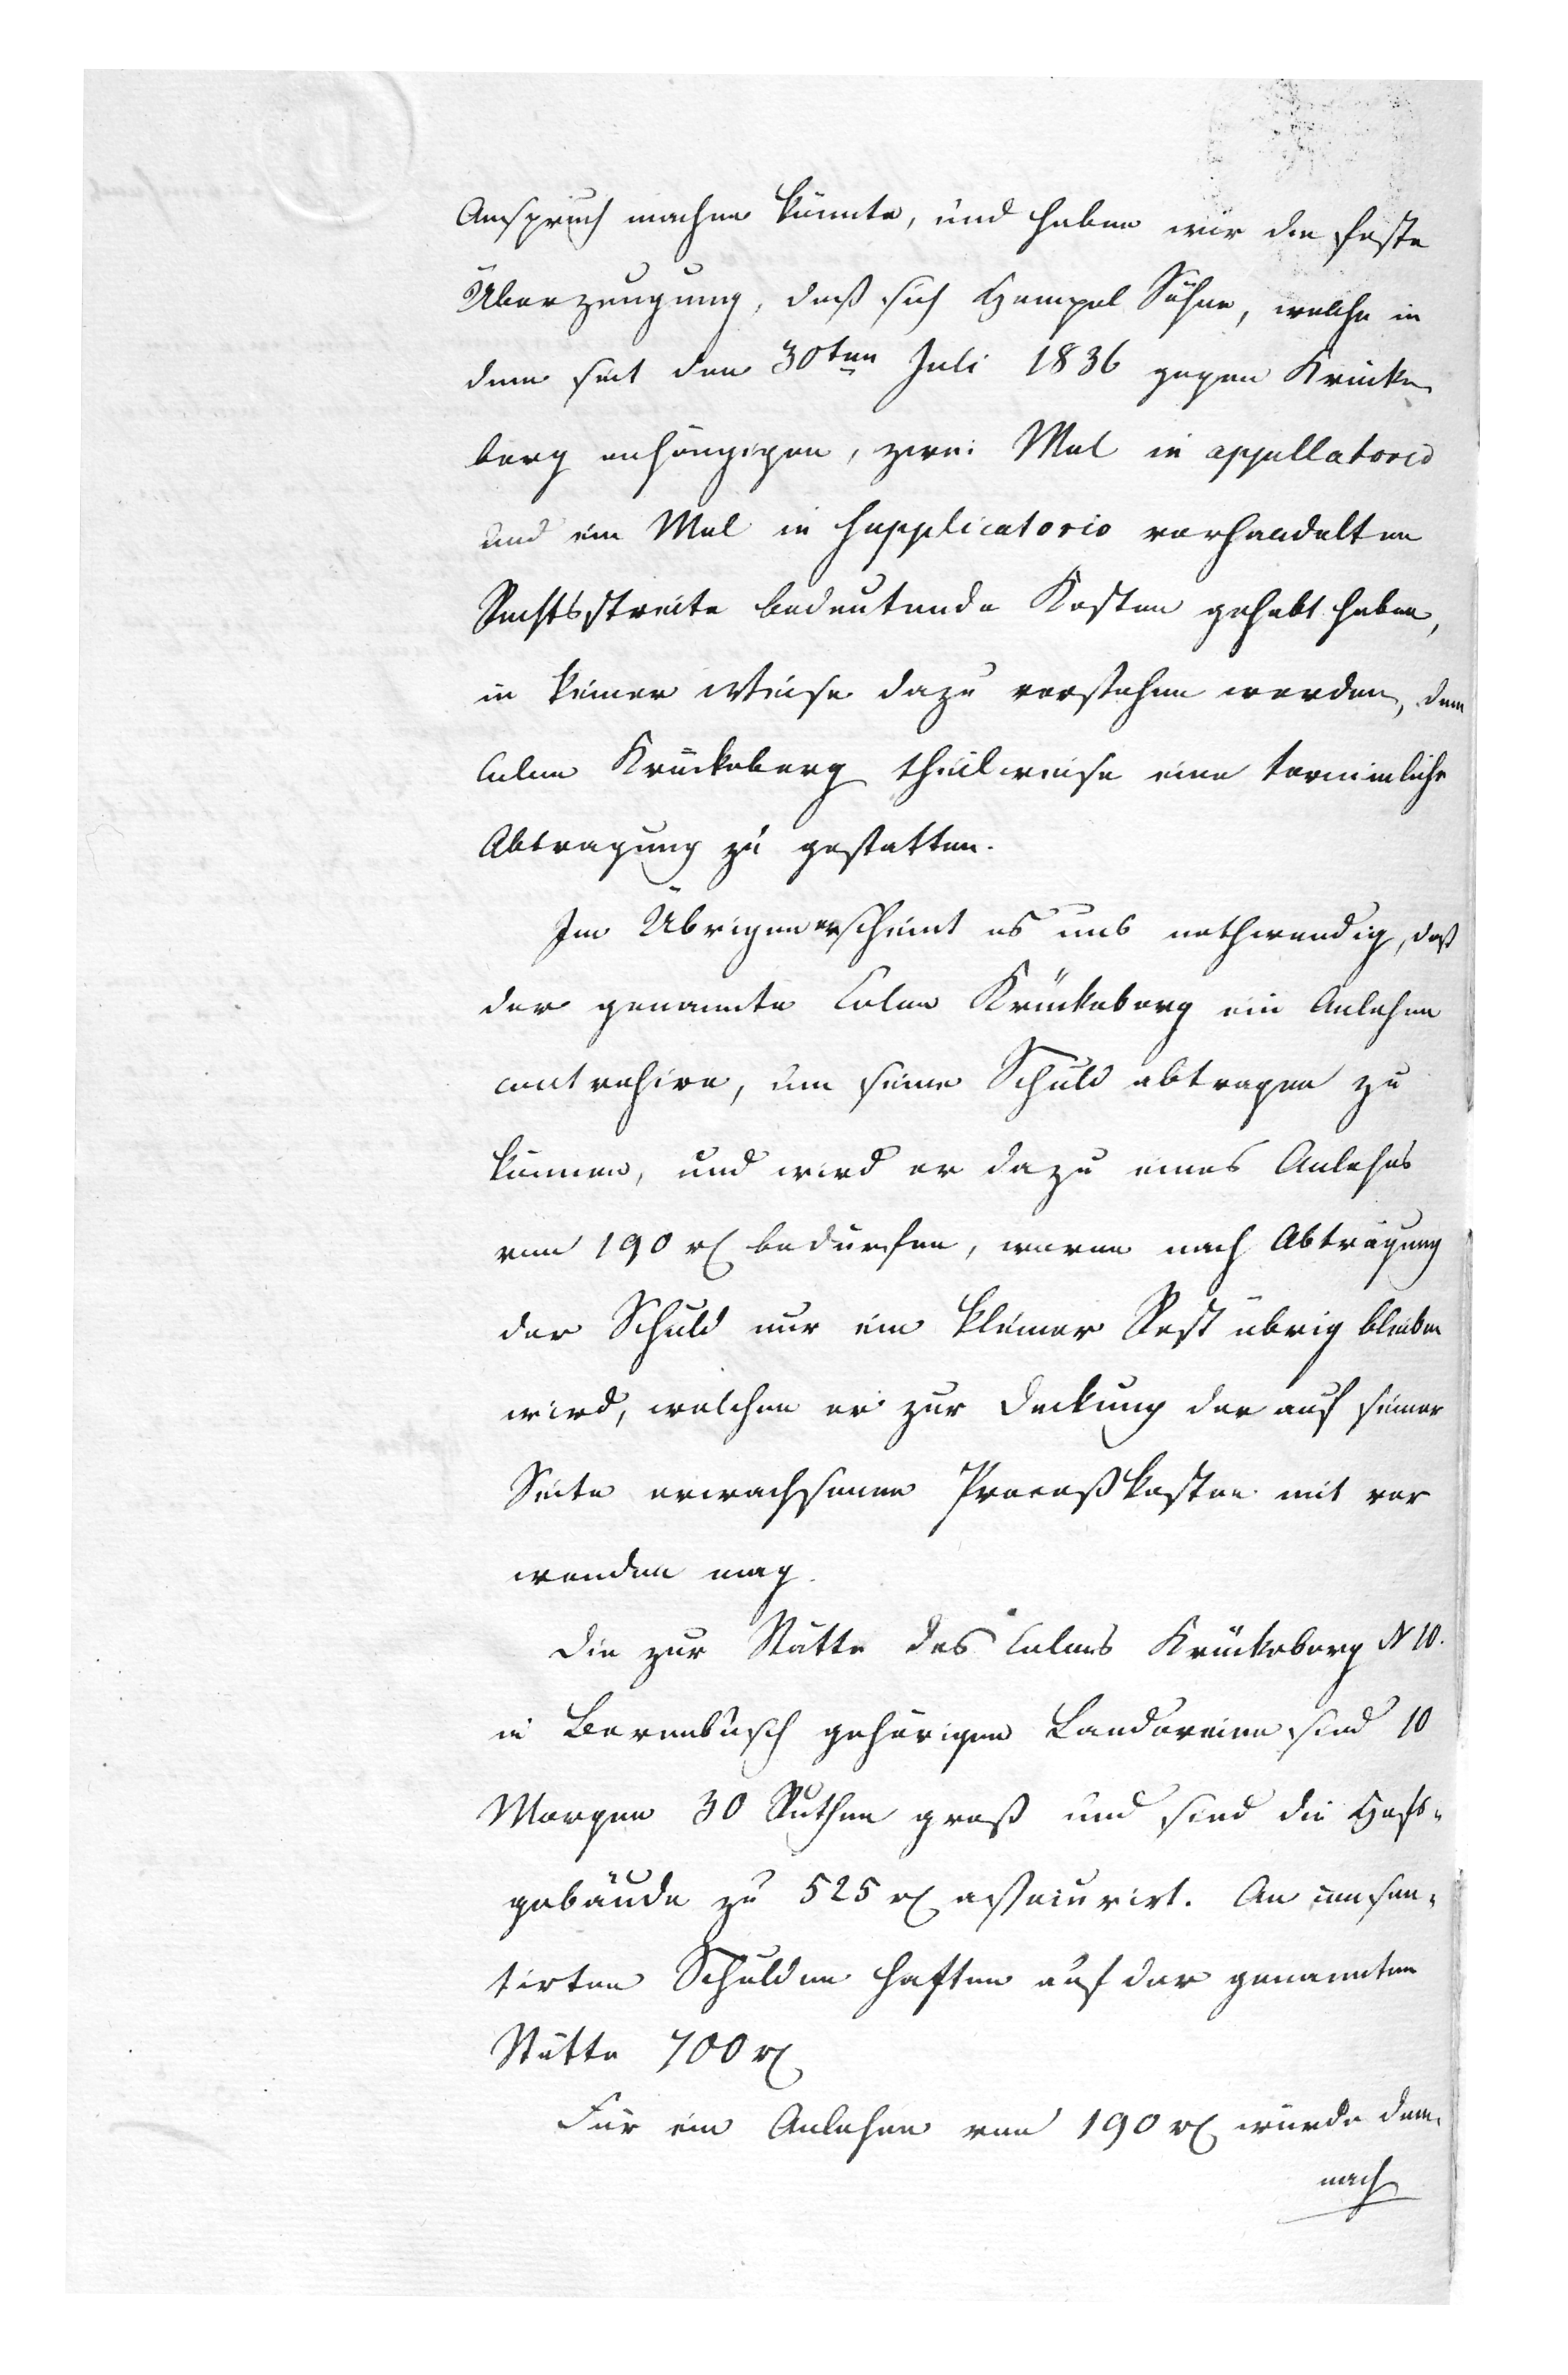 Anspruch machen könnte, und haben wir die feste
Überzeugung, daß sich Hempel Söhne, welche in
dem seit den 30ten Juli 1836 gegen Krücke
berg anhängigen, zwei Mal in appellatorio
und ein Mal in supplicatorio verhandelten
Rechtsstreite bedeutende Kosten gehabt haben,
in keiner Weise dazu verstehen werden, dem
Colon Krückeberg theilweise eine terminliche
Abtragung zu gestatten.
Im Übrigen erscheint es uns nothwendig, daß
der genannte Colon Krückeberg ein Anlehen
contrahire, um seine Schuld abtragen zu
können, und wird er dazu eines Anlehns
von 190 rℓ bedürfen, wovon nach Abtragung
der Schuld nur ein kleiner Rest übrig bleiben
wird, welchen er zur Deckung der auf seiner
Seite erwachsenen Proceßkosten mit ver
wenden mag.
Die zur Stätte des Colons Krückeberg N 10.
in Berenbusch gehörigen Ländereien sind 10
Morgen 30 Ruthen groß und sind die Hofs-
gebäude zu 525 rℓ assecurirt. An consen-
tirten Schulden haften auf der genannten
Stätte 700 rℓ
Für ein Anlehen von 190 rℓ würde dem-
nach